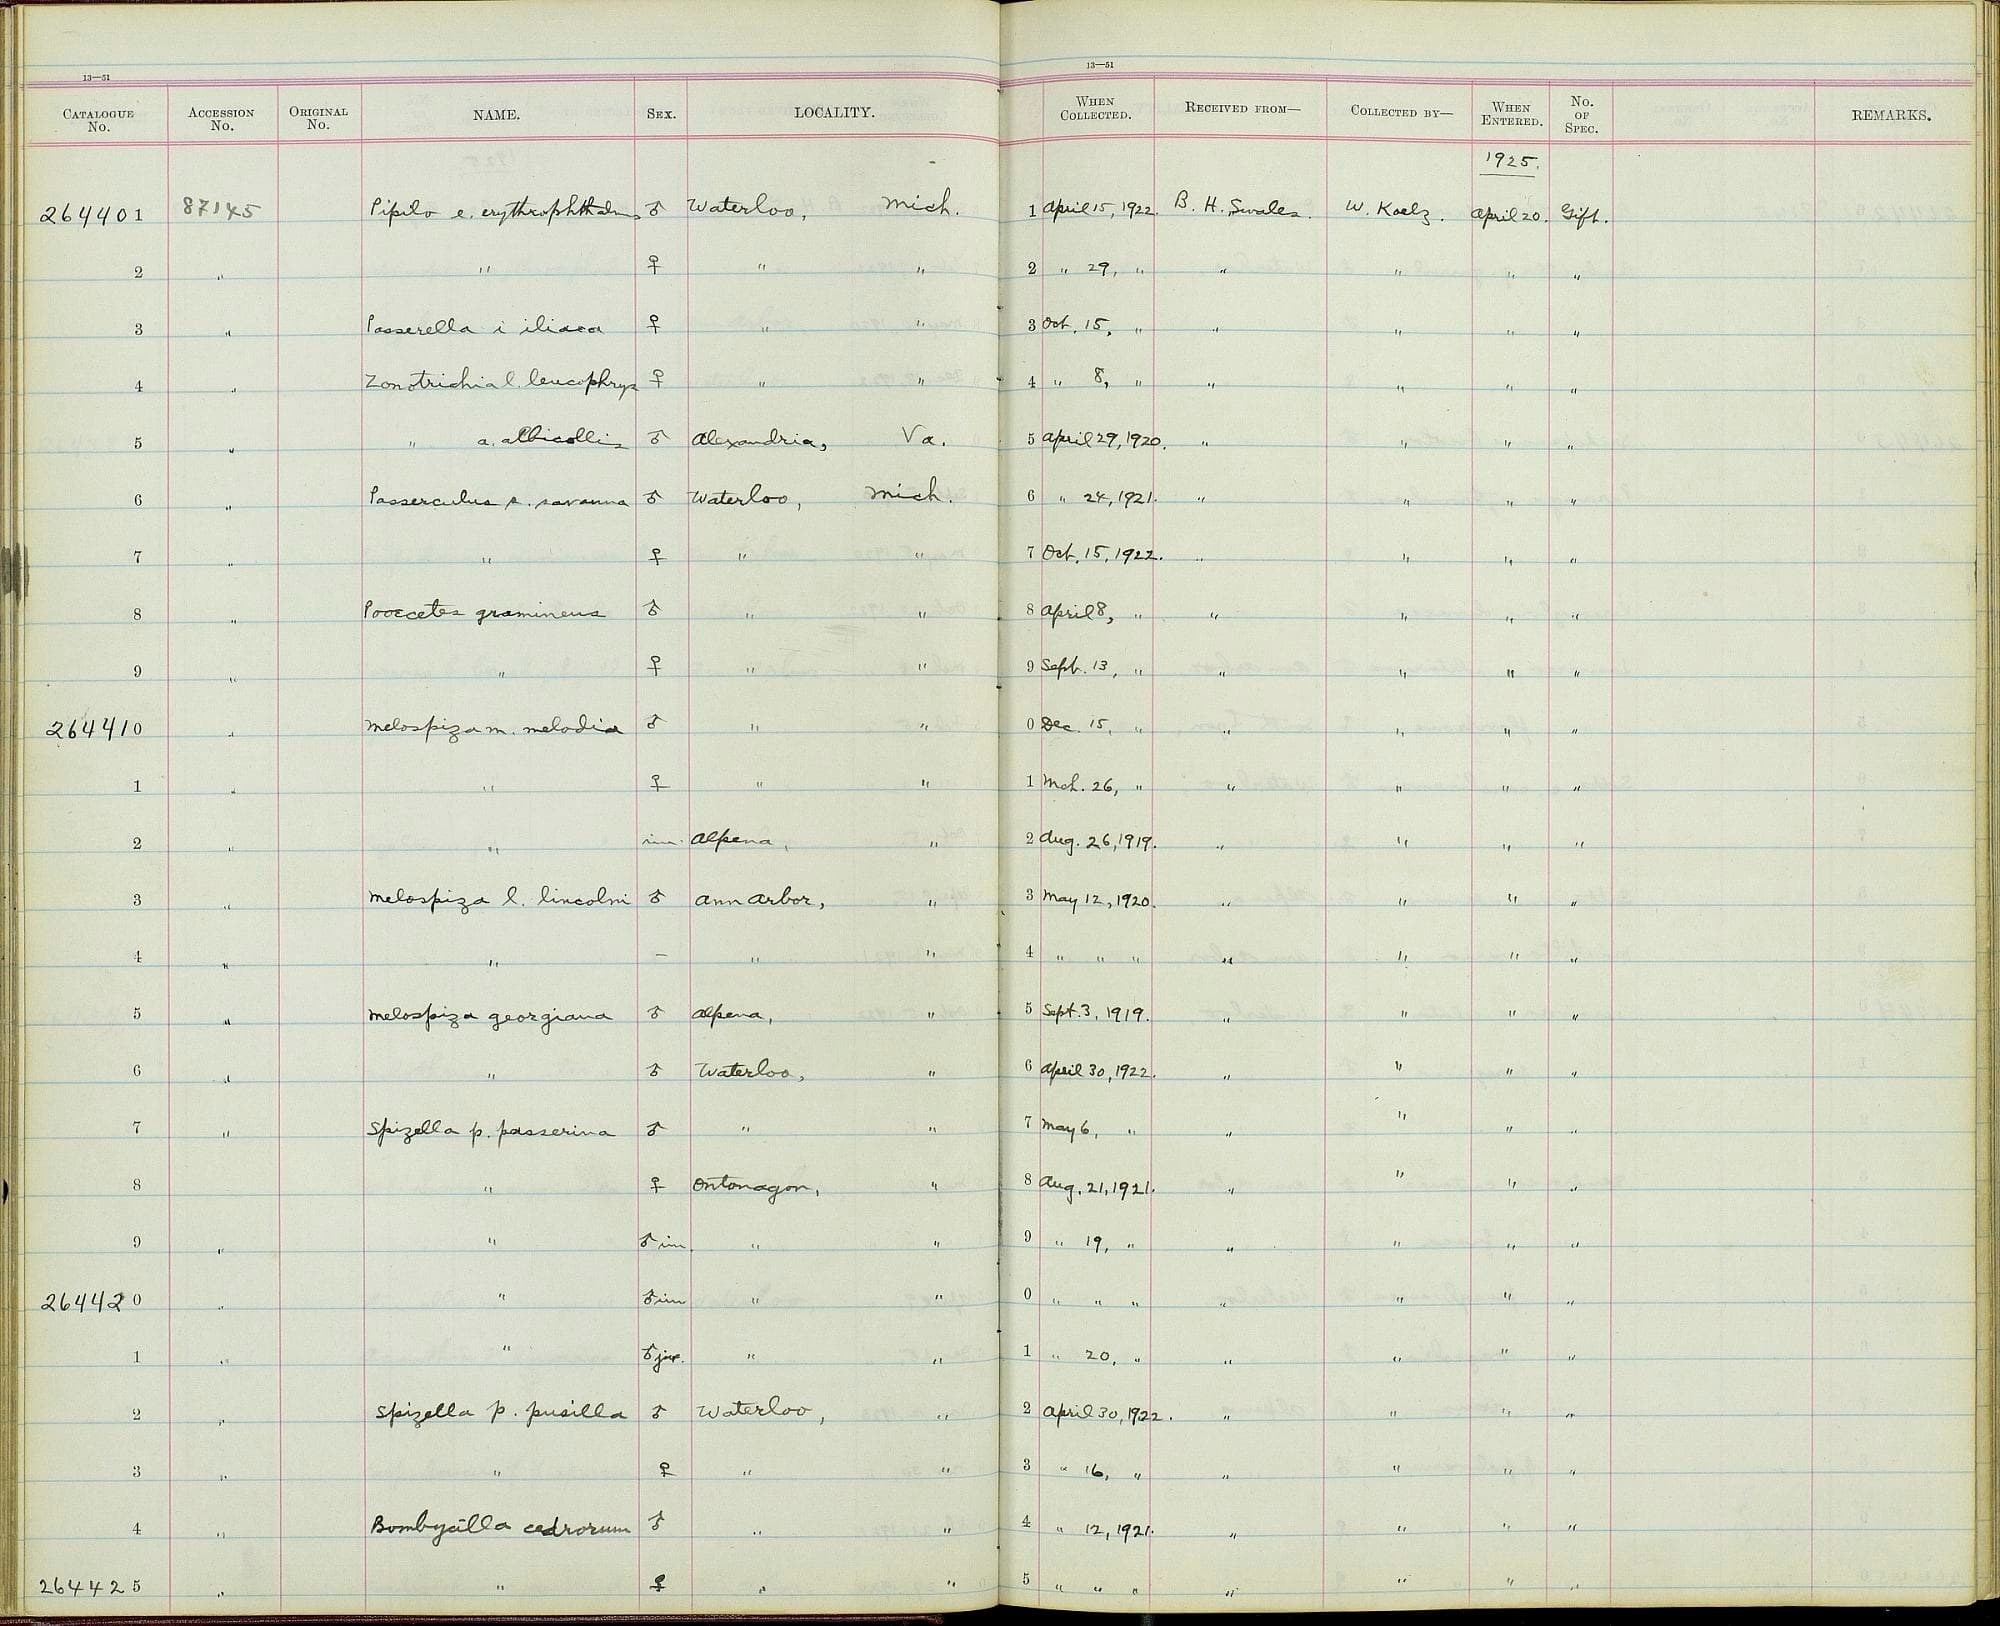 13—51 13—51
CATALOGUE No. ACCESSION No. ORIGINAL No. NAME. SEX. LOCALITY. WHEN COLLECTED. RECEIVED FROM— COLLECTED BY— WHEN ENTERED. No. OF SPEC. REMARKS.
1925.
264401 87145 Pipilo e. erythrophthalmus ♂ Waterloo, Mich. 1 April 15, 1922. B. H. Swales. W. Koelz. April 20. Gift.
2 " " ♀ " " 2 " 29, " " " " "
3 " Passerella i iliaca ♀ " " 3 Oct. 15, " " " " "
4 " Zonotrichia l. leucophrys ♀ " " 4 " 8, " " " " "
5 " " a. albicollis ♂ Alexandria, Va. 5 April 29, 1920. " " " "
6 " Passerculus s. savanna ♂ Waterloo, Mich. 6 " 24, 1921. " " " "
7 " " ♀ " " 7 Oct. 15, 1922. " " " "
8 " Pooecetes gramineus ♂ " " 8 April 8, " " " " "
9 " " ♀ " " 9 Sept. 13, " " " " "
264410 " Melospiza m. melodia ♂ " " 0 Dec. 15, " " " " "
1 " " ♀ " " 1 Mch. 26, " " " " "
2 " " im. Alpena, " 2 Aug. 26, 1919. " " " "
3 " Melospiza l. lincolni ♂ Ann Arbor, " 3 May 12, 1920. " " " "
4 " " — " " 4 " " " " " " "
5 " Melospiza georgiana ♂ Alpena, " 5 Sept. 3, 1919. " " " "
6 " " ♂ Waterloo, " 6 April 30, 1922. " " " "
7 " Spizella p. passerina ♂ " " 7 May 6, " " " " "
8 " ♀ Ontonagon, " 8 Aug. 21, 1921. " " " "
9 " " ♂ im. " " 9 " 19, " " " " "
264420 " " ♂ im " " 0 " " " " " " "
1 " " ♂ juv. " " 1 " 20, " " " " "
2 " Spizella p. pusilla ♂ Waterloo, " 2 April 30, 1922. " " " "
3 " " ♀ " " 3 " 16, " " " " "
4 " Bombycilla cedrorum ♂ " " 4 " 12, 1921. " " " "
264425 " " ♀ " " 5 " " " " " " "